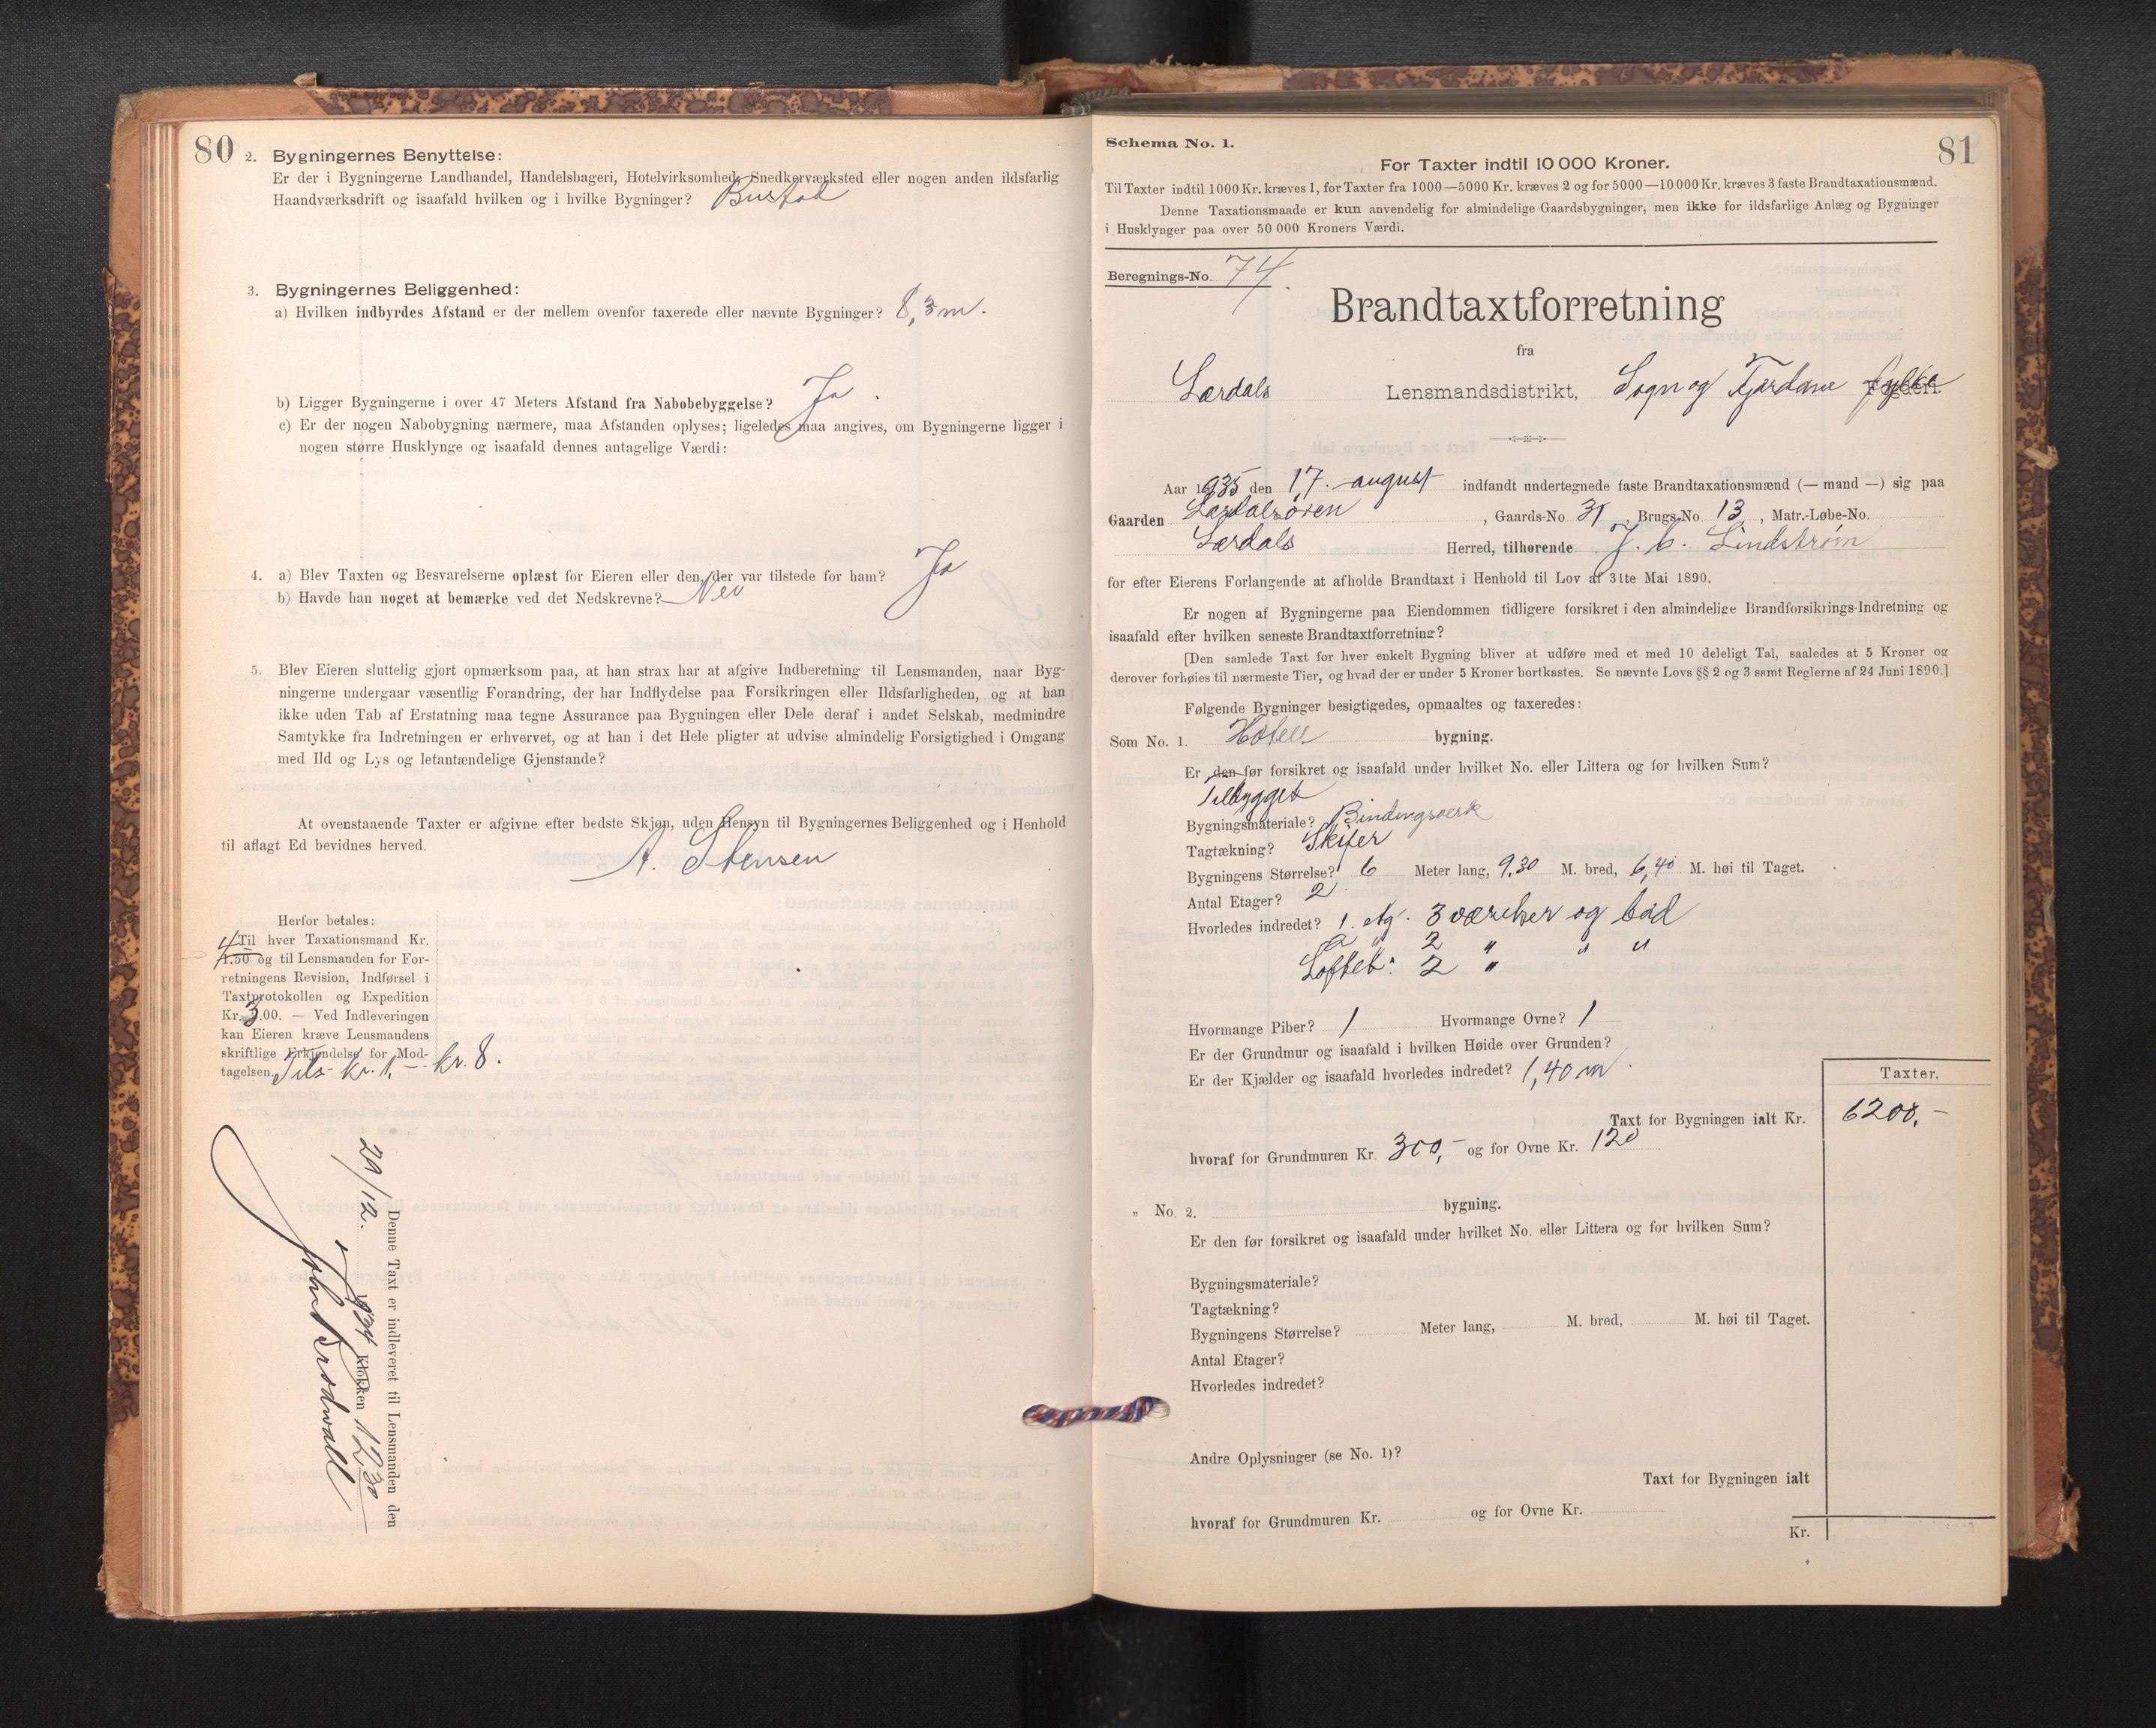 80
2. Bygningernes Benyttelse:
Er der i Bygningerne Landhandel, Handelsbageri, Hotelvirksomhed, Snedkerværksted eller nogen anden ildsfarlig
Haandværksdrift og isaafald hvilken og i hvilke Bygninger? Bustad
3. Bygningernes Beliggenhed:
a) Hvilken indbyrdes Afstand er der mellem ovenfor taxerede eller nævnte Bygninger? 8,3 m.
b) Ligger Bygningerne i over 47 Meters Afstand fra Nabobebyggelse? Ja
c) Er der nogen Nabobygning nærmere, maa Afstanden oplyses; ligeledes maa angives, om Bygningerne ligger i
nogen større Husklynge og isaafald dennes antagelige Værdi:
4. a) Blev Taxten og Besvarelserne oplæst for Eieren eller den, der var tilstede for ham? Ja
b) Havde han noget at bemærke ved det Nedskrevne? Nei
5. Blev Eieren sluttelig gjort opmærksom paa, at han strax har at afgive Indberetning til Lensmanden, naar Byg-
ningerne undergaar væsentlig Forandring, der har Indflydelse paa Forsikringen eller Ildsfarligheden, og at han
ikke uden Tab af Erstatning maa tegne Assurance paa Bygningen eller Dele deraf i andet Selskab, medmindre
Samtykke fra Indretningen er erhvervet, og at han i det Hele pligter at udvise almindelig Forsigtighed i Omgang
med Ild og Lys og letantændelige Gjenstande?
At ovenstaaende Taxter er afgivne efter bedste Skjøn, uden Hensyn til Bygningernes Beliggenhed og i Henhold
til aflagt Ed bevidnes herved.
A. Stensen
Herfor betales:
4 Til hver Taxationsmand Kr.
1.50 og til Lensmanden for For-
retningens Revision, Indførsel i
Taxtprotokollen og Expedition
Kr. 3.00. — Ved Indleveringen
kan Eieren kræve Lensmandens
skriftlige Erkjendelse for Mod-
tagelsen. Tils kr. 1,- kr. 8.
Denne Taxt er indleveret til Lensmanden den
29/12. 1934 Klokken 12 30
81
Schema No. 1.
For Taxter indtil 10 000 Kroner.
Til Taxter indtil 1000 Kr. kræves 1, for Taxter fra 1000—5000 Kr. kræves 2 og for 5000—10 000 Kr. kræves 3 faste Brandtaxationsmænd.
Denne Taxationsmaade er kun anvendelig for almindelige Gaardsbygninger, men ikke for ildsfarlige Anlæg og Bygninger
i Husklynger paa over 50 000 Kroners Værdi.
Beregnings-No. 74.
Brandtaxtforretning
fra
Lærdals Lensmandsdistrikt, Sogn og Fjordane fylke Fogderi.
Aar 1935 den 17. august indfandt undertegnede faste Brandtaxationsmænd (— mand —) sig paa
Gaarden Lærdalsøren, Gaards-No. 31, Brugs-No 13, Matr.-Løbe-No.
Lærdals Herred, tilhørende J. C. Lindstrøm
for efter Eierens Forlangende at afholde Brandtaxt i Henhold til Lov af 31te Mai 1890.
Er nogen af Bygningerne paa Eiendommen tidligere forsikret i den almindelige Brandforsikrings-Indretning og
isaafald efter hvilken seneste Brandtaxtforretning?
[Den samlede Taxt for hver enkelt Bygning bliver at udføre med et med 10 deleligt Tal, saaledes at 5 Kroner og
derover forhøies til nærmeste Tier, og hvad der er under 5 Kroner bortkastes. Se nævnte Lovs §§ 2 og 3 samt Reglerne af 24 Juni 1890.]
Følgende Bygninger besigtigedes, opmaaltes og taxeredes:
Som No. 1. Hotell bygning.
Er den før forsikret og isaafald under hvilket No. eller Littera og for hvilken Sum?
Tilbygget
Bygningsmateriale? Bindingsverk
Tagtækning? Skifer
Bygningens Størrelse? 6 Meter lang, 9,30 M. bred, 6,40 M. høi til Taget.
Antal Etager? 2
Hvorledes indredet? 1. etg. 3 værelser og bad
2 " 2 " " "
Loftet: 2 "
Hvormange Piber? 1 Hvormange Ovne? 1
Er der Grundmur og isaafald i hvilken Høide over Grunden?
Er der Kjælder og isaafald hvorledes indredet? 1,40 m.
Taxter.
Taxt for Bygningen ialt Kr. 6200,-
hvoraf for Grundmuren Kr. 300,- og for Ovne Kr. 120
„ No. 2. bygning.
Er den før forsikret og isaafald under hvilket No. eller Littera og for hvilken Sum?
Bygningsmateriale?
Tagtækning?
Bygningens Størrelse? Meter lang, M. bred, M. høi til Taget.
Antal Etager?
Hvorledes indredet?
Andre Oplysninger (se No. 1)?
Taxt for Bygningen ialt
hvoraf for Grundmuren Kr. og for Ovne Kr.
Kr.